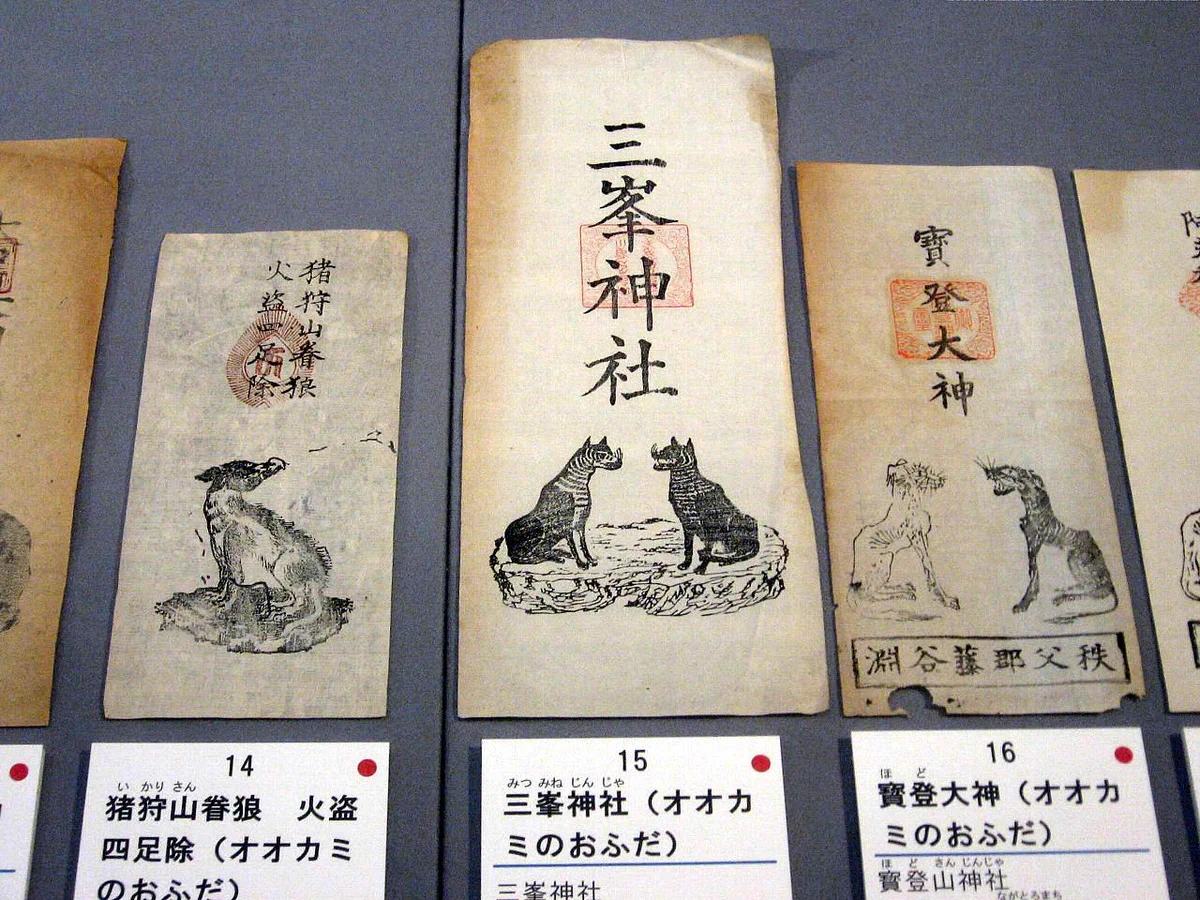 猪狩山眷狼
火盗四足除
14
い かり さん
猪狩山眷狼　火盗
四足除（オオカミ
のおふだ）
三峯神社
15
みつ みね じん じゃ
三峯神社（オオカ
ミのおふだ）
三峯神社
寶登大神
秩父郡藤谷淵
16
ほ ど
寳登大神（オオカ
ミのおふだ）
ほ ど さん じんじゃ
寳登山神社
ながとろまち